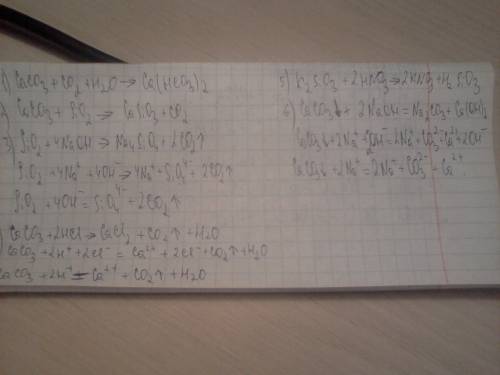 1) CaCO3 + CO2 + H2O → Ca(HCO3)2
2) CaCO3 + SiO2 → CaSiO3 + CO2
3) SiO2 + 4NaOH → Na4SiO4 + 2CO2↑
SiO2 + 4Na⁺ + 4OH⁻ → 4Na⁺ + SiO4⁴⁻ + 2CO2↑
SiO2 + 4OH⁻ = SiO4⁴⁻ + 2CO2↑
) CaCO3 + 2HCl → CaCl2 + CO2↑ + H2O
CaCO3 + 2H⁺ + 2Cl⁻ = Ca²⁺ + 2Cl⁻ + CO2↑ + H2O
CaCO3 + 2H⁺ = Ca²⁺ + CO2↑ + H2O
5) K2SiO3 + 2HNO3 → 2KNO3 + H2SiO3
6) CaCO3↓ + 2NaOH = Na2CO3 + Ca(OH)2
CaCO3↓ + 2Na⁺ + 2OH⁻ = 2Na⁺ + CO3²⁻ + Ca²⁺ + 2OH⁻
CaCO3↓ + 2Na⁺ = 2Na⁺ + CO3²⁻ + Ca²⁺